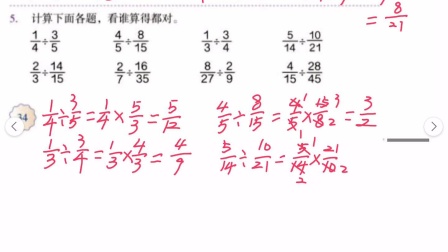 = 8/21
5. 计算下面各题，看谁算得都对。
1/4÷3/5 4/5÷8/15 1/3÷3/4 5/14÷10/21
2/3÷14/15 2/7÷16/35 8/27÷2/9 4/15÷28/45
34
1/4÷3/5=1/4×5/3=5/12 4/5÷8/15=4/5×15/8=3/2
1 3
1 2
1/3÷3/4=1/3×4/3=4/9 5/14÷10/21=5/14×21/10
1
2 2